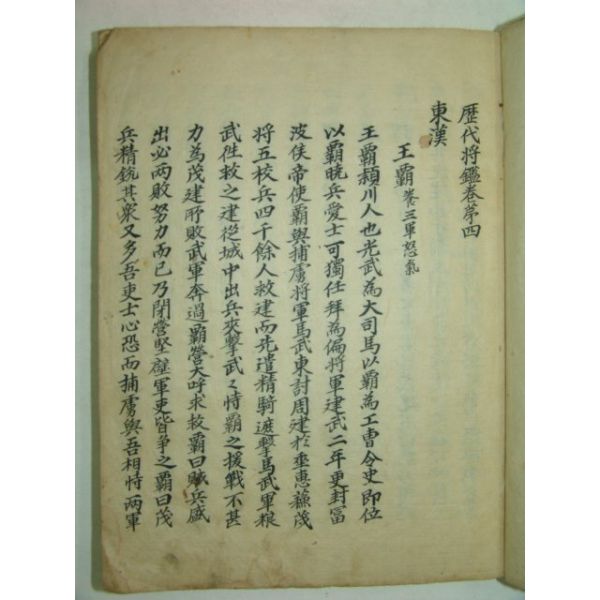 歷代将鑑卷苐四
東漢
王霸 養三軍怒氣
王霸頴川人也光武為大司馬以霸為工曹令史即位
以霸曉兵愛士可獨任拜為偏将軍建武二年更封冨
波侯帝使霸與捕虜将軍馬武東討周建於垂惠蘓茂
将五校兵四千餘人救建而先遣精騎遮擊馬武軍粮
武徃救之建從城中出兵夾擊武〻恃霸之援戰不甚
力為茂建所敗武軍奔過霸營大呼求救霸曰賊兵盛
出必两敗努力而已乃閉營堅壁軍吏皆争之霸曰茂
兵精銳其衆又多吾吏士心恐而捕虜與吾相恃两軍